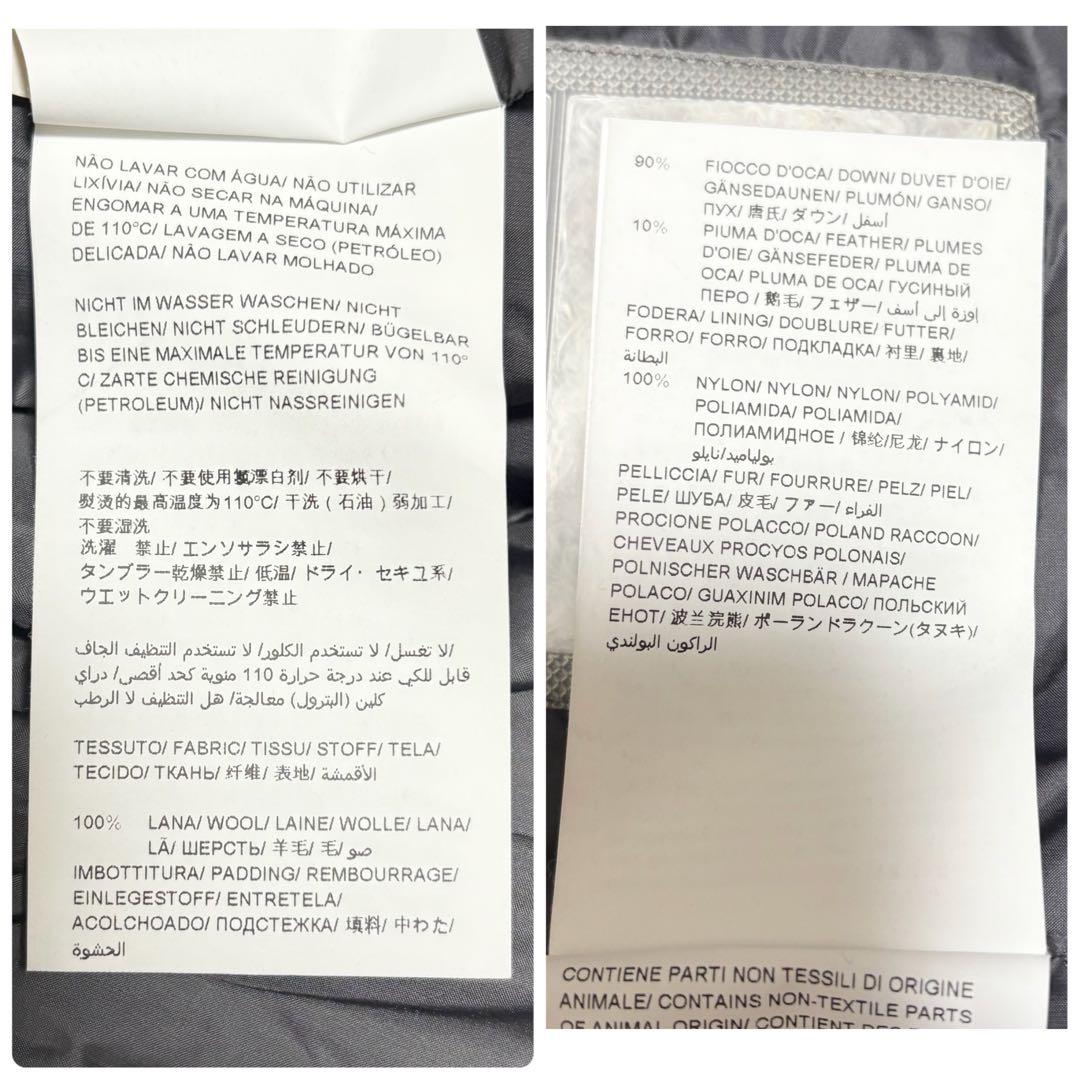 NÃO LAVAR COM ÁGUA/ NÃO UTILIZAR
LIXÍVIA/ NÃO SECAR NA MÁQUINA/
ENGOMAR A UMA TEMPERATURA MÁXIMA
DE 110°C/ LAVAGEM A SECO (PETRÓLEO)
DELICADA/ NÃO LAVAR MOLHADO
NICHT IM WASSER WASCHEN/ NICHT
BLEICHEN/ NICHT SCHLEUDERN/ BÜGELBAR
BIS EINE MAXIMALE TEMPERATUR VON 110°
C/ ZARTE CHEMISCHE REINIGUNG
(PETROLEUM)/ NICHT NASSREINIGEN
不要清洗/ 不要使用氯漂白剂/ 不要烘干/
熨烫的最高温度为110°C/ 干洗 ( 石油 ) 弱加工/
不要湿洗
洗濯 禁止/ エンソサラシ禁止/
タンブラー乾燥禁止/ 低温/ ドライ・ セキユ系/
ウエットクリーニング禁止
لا تغسل/ لا تستخدم الكلور/ لا تستخدم التنظيف الجاف/
قابل للكي عند درجة حرارة 110 مئوية كحد أقصى/ دراي
كلين (البترول) معالجة/ هل التنظيف لا الرطب
TESSUTO/ FABRIC/ TISSU/ STOFF/ TELA/
TECIDO/ ТКАНЬ/ 纤维/ 表地/ الأقمشة
100% LANA/ WOOL/ LAINE/ WOLLE/ LANA/
LÃ/ ШЕРСТЬ/ 羊毛/ 毛/ صو
IMBOTTITURA/ PADDING/ REMBOURRAGE/
EINLEGESTOFF/ ENTRETELA/
ACOLCHOADO/ ПОДСТЕЖКА/ 填料/ 中わた/
الحشوة
90% FIOCCO D'OCA/ DOWN/ DUVET D'OIE/
GÄNSEDAUNEN/ PLUMÓN/ GANSO/
ПУХ/ 唐氏/ ダウン/ أسفل
10% PIUMA D'OCA/ FEATHER/ PLUMES
D'OIE/ GÄNSEFEDER/ PLUMA DE
OCA/ PLUMA DE OCA/ ГУСИНЫЙ
ПЕРО / 鹅毛/ フェザー/ اوزة إلى أسف
FODERA/ LINING/ DOUBLURE/ FUTTER/
FORRO/ FORRO/ ПОДКЛАДКА/ 衬里/ 裏地/
البطانة
100% NYLON/ NYLON/ NYLON/ POLYAMID/
POLIAMIDA/ POLIAMIDA/
ПОЛИАМИДНОЕ / 锦纶/尼龙/ ナイロン/
بولياميد/نايلو
PELLICCIA/ FUR/ FOURRURE/ PELZ/ PIEL/
PELE/ ШУБА/ 皮毛/ ファー/ الفراء
PROCIONE POLACCO/ POLAND RACCOON/
CHEVEAUX PROCYOS POLONAIS/
POLNISCHER WASCHBÄR / MAPACHE
POLACO/ GUAXINIM POLACO/ ПОЛЬСКИЙ
ЕНОТ/ 波兰浣熊/ ポーランドラクーン(タヌキ)/
الراكون البولندي
CONTIENE PARTI NON TESSILI DI ORIGINE
ANIMALE/ CONTAINS NON-TEXTILE PARTS
OF ANIMAL ORIGIN/ CONTIENT DES